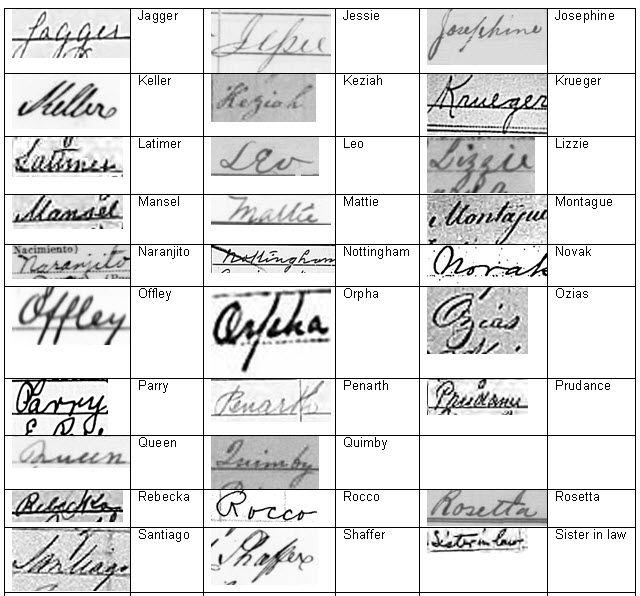 Jagger Jagger Jessie Jessie Josephine Josephine
Keller Keller Keziah Keziah Krueger Krueger
Latimer Latimer Leo Leo Lizzie Lizzie
Mansel Mansel Mattie Mattie Montague Montague
Nacimiento)
Naranjito Naranjito Nottingham Nottingham Novak Novak
Offley Offley Orpha Orpha Ozias Ozias
Parry Parry Penarth Penarth Prudance Prudance
Queen Queen Quimby Quimby
Rebecka Rebecka Rocco Rocco Rosetta Rosetta
Santiago Santiago Shaffer Shaffer Sister in law Sister in law